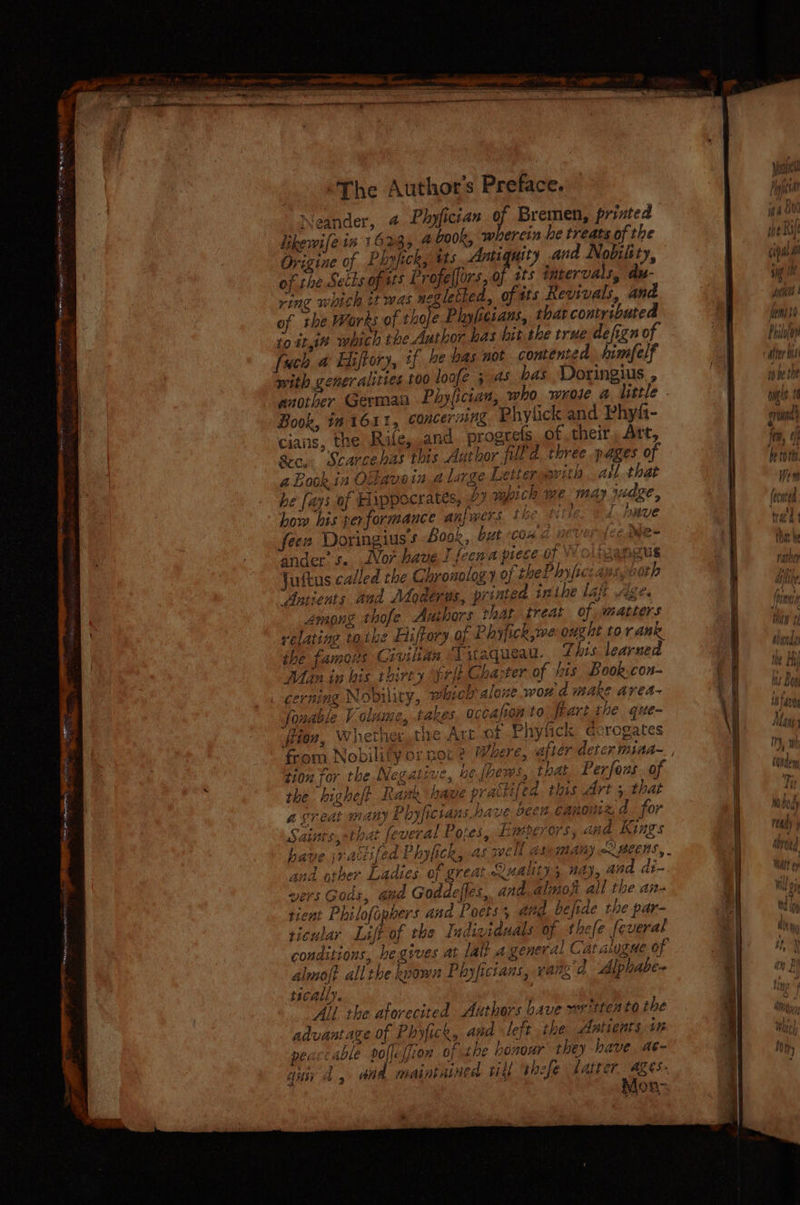 The Author's Preface.
Neander, a Phyſician of Bremen, printed
likewiſe in 1623, a book, wherein he treats of the
Origine of Phyſick, its Antiquity and Nobility,
of the Sects of its Profeſſors, of its intervals, du-
ring which it was neglected, of its Revivals, and
of the Works of thoſe Phyſicians, that contributed
to it, in which the Author has hit the true deſign of
ſuch a Hiſtory, if he has not contented himſelf
with generalities too looſe; as has Doringius,
another German Phyſician, who wrote a little
Book, in 1611, concerning Phyſick and Phyſi-
cians, the Riſe, and progreſs of their Art,
&c. Scarce has this Author fill'd three pages of
a Book in Octavo in a large Letter with all that
he ſays of Hippocrates, by which we may judge,
how his performance anſwers the title. I have
ſeen Doringius's Book, but cou'd never ſee Ne-
ander's. Nor have I ſeen a piece of Wolfgangus
Juſtus called the Chronology of the Phyſicians, both
Antients and Moderns, printed in the laſt Age.
Among thoſe Authors that treat of matters
relating to the Hiſtory of Phyſick, we ought to rank
the famous Civilian Tiraqueau. This learned
Man in his thirty firſt Chapter of his Book con-
cerning Nobility, which alone wou'd make a rea-
ſonable Volume, takes occaſion to ſtart the que-
ſtion, Whether the Art of Phyſick derogates
from Nobility or not? Where, after determina-
tion for the Negative, he ſhews, that Perſons of
the higheſt Rank have practiſed this Art; that
a great many Phyſicians have been canoniz'd for
Saints, that ſeveral Popes, Emperors, and Kings
have practiſed Phyſick, as well as many Queens,
and other Ladies of great Quality; nay, and di-
vers Gods, and Goddeſſes, and almoſt all the an-
tient Philoſophers and Poets; and beſide the par-
ticular Liſt of the Individuals of theſe ſeveral
conditions, he gives at laſt a general Catalogue of
almoſt all the known Phyſicians, rang'd Alphabe-
tically.
All the aforecited Authors have written to the
advantage of Phyſick, and left the Antients in
peaceable poſſeſſion of the honour they have ac-
quir'd, and maintained till theſe latter ages.
Mon-